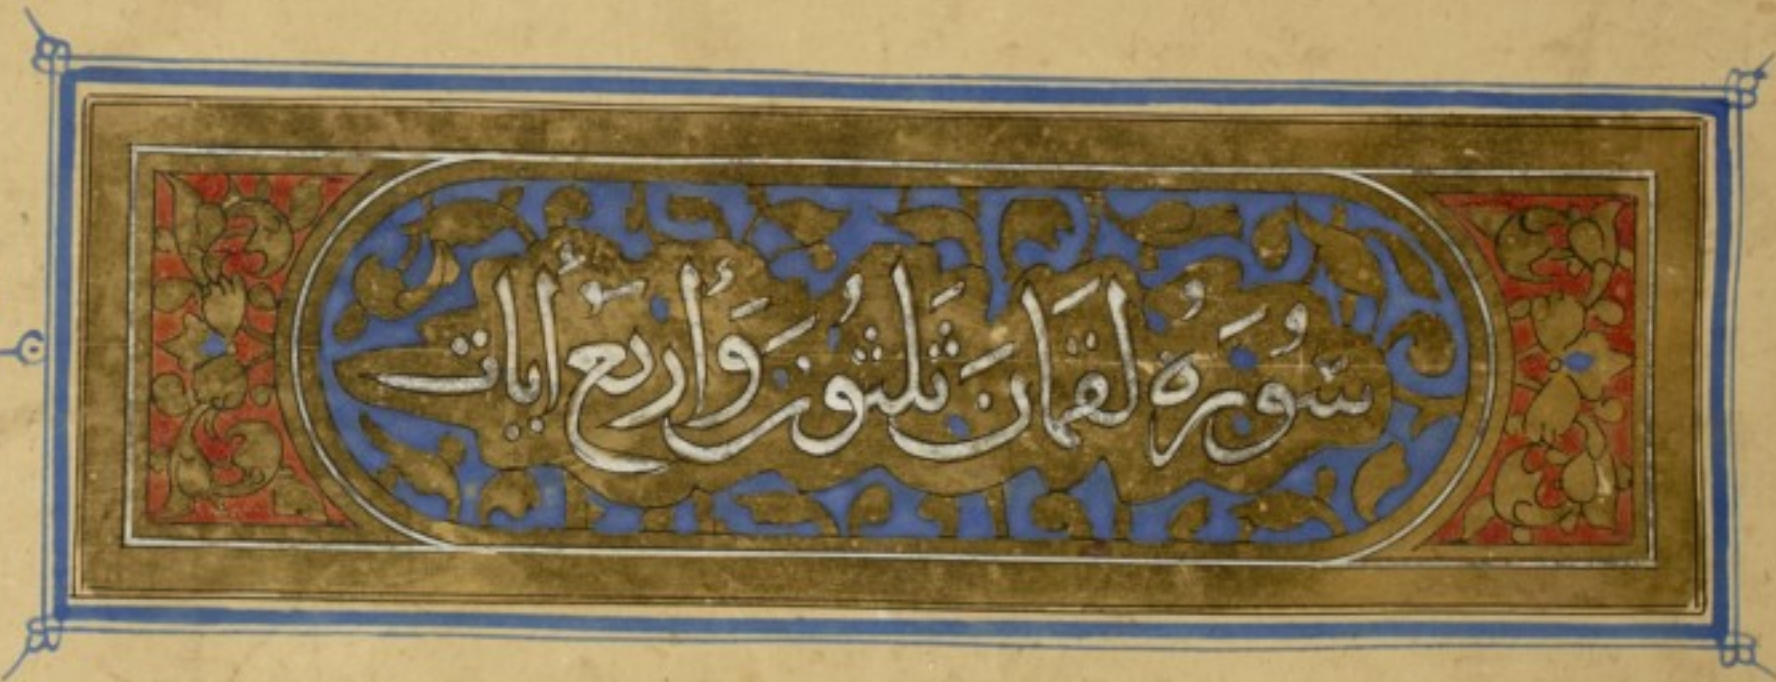 سُورَةُ لقمَانَ ثَلثُونَ وَأَربَعُ أيات